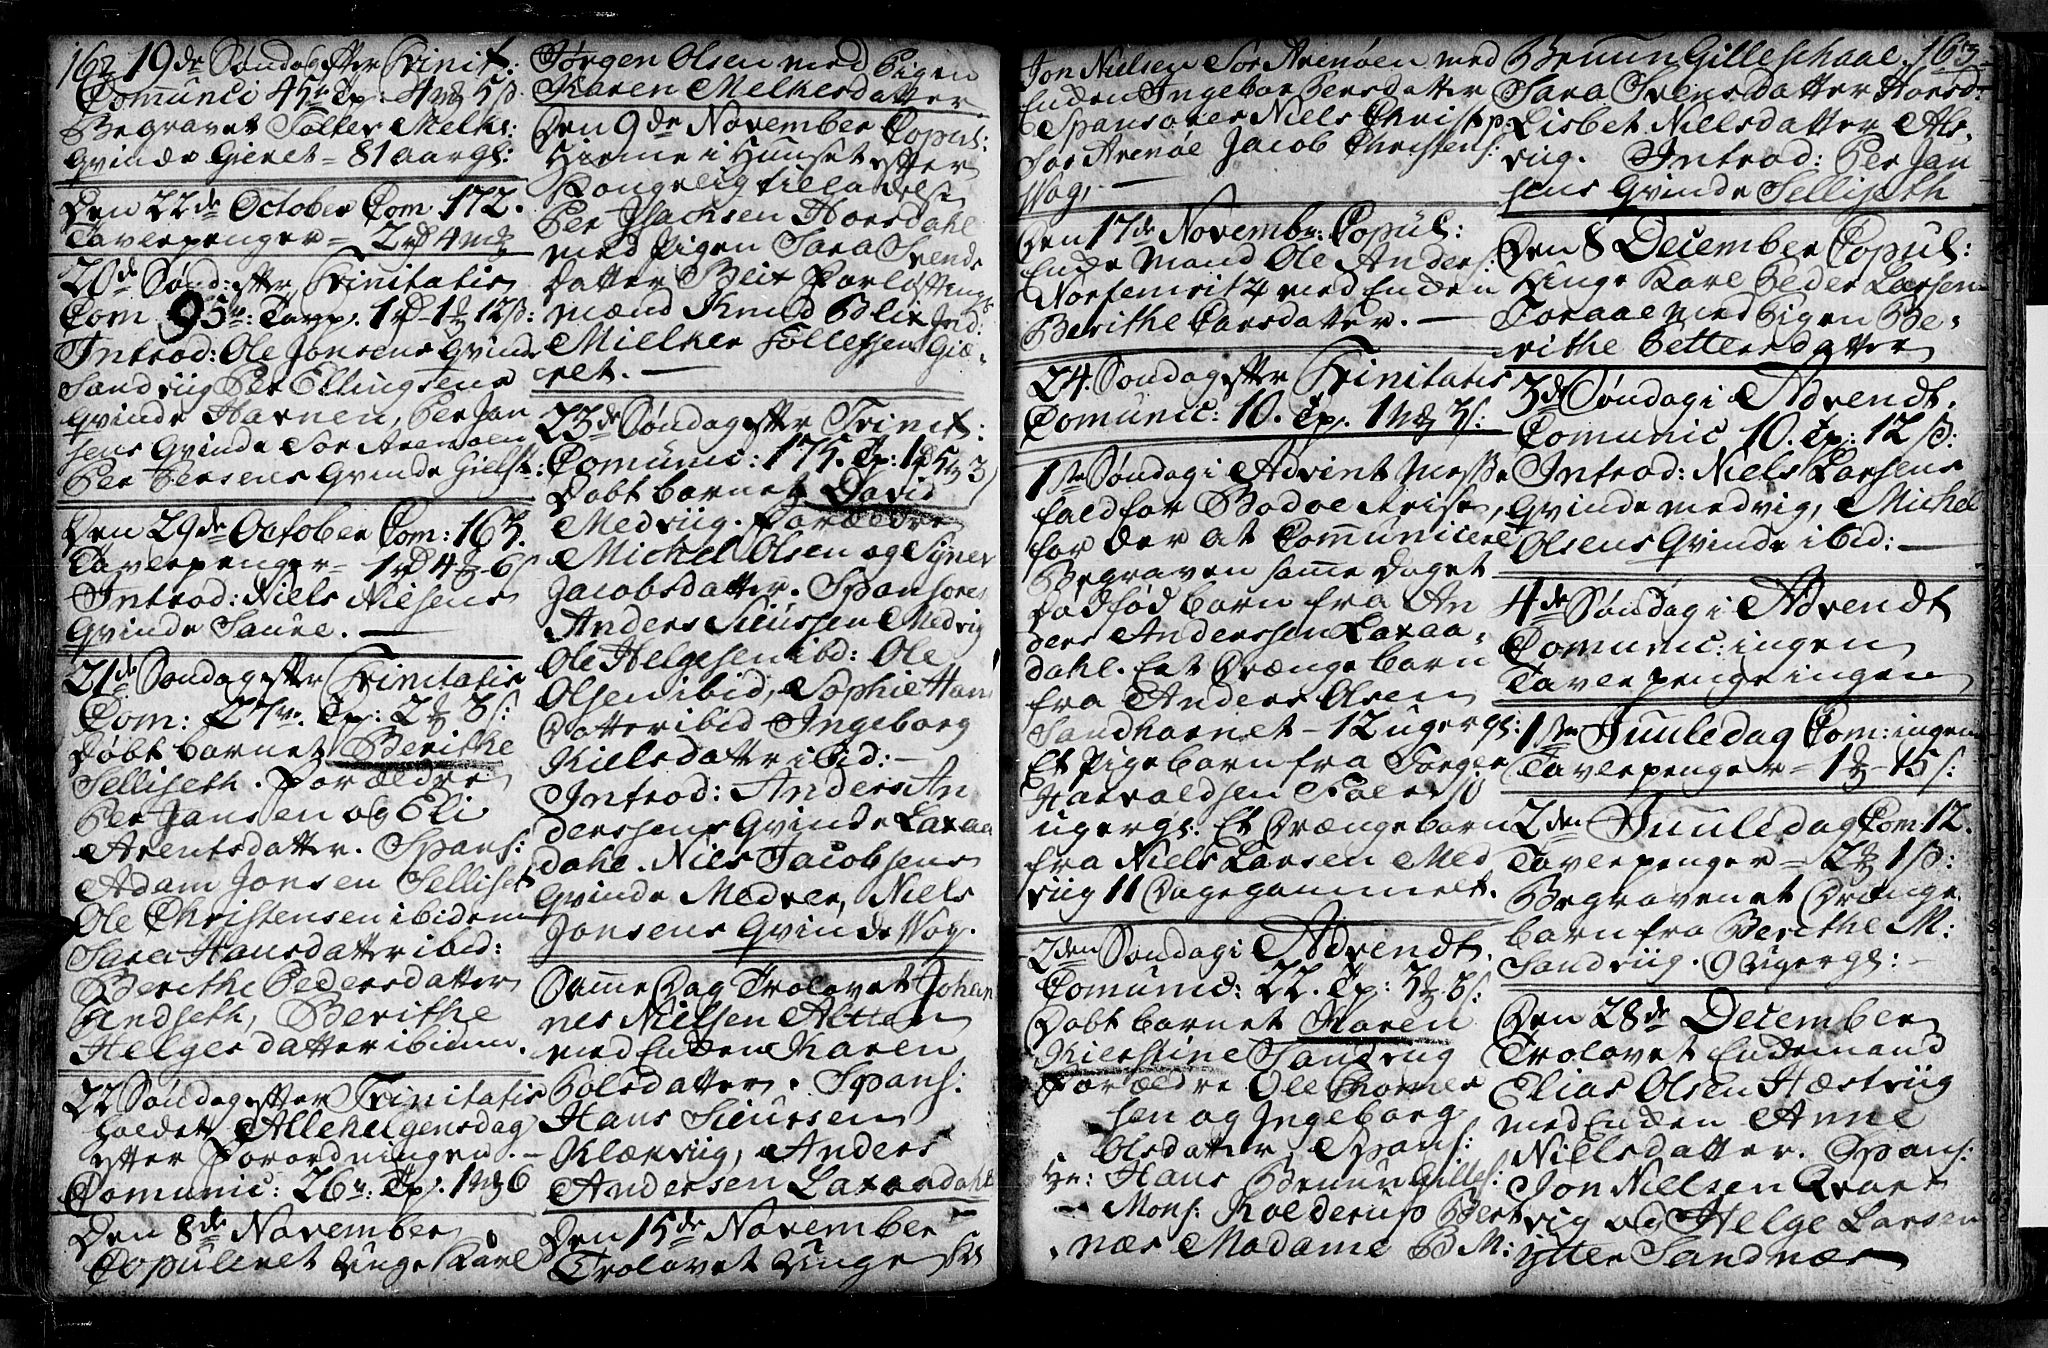 162
19de Søndag efter Trinit:
Comunic 45n Tp: 4 5 ß
Begravet Folker Melks:
Qvinde Gieret = 81 aar gl:
Den 22de October Com. 172.
Taverpenger = 2 4
20de Sønd: efter Trinitatis
Com 95n: Tavp. 1 - 1 12 ß:
Introd: Ole Jonsens Qvinde
Sandviig Per Ellingsens
Qvinde Harnen, Per Jan
sens Qvinde Sør Arenøen
Per Persens Qvinde
Den 29de October Com: 163.
Taverpenger = 1 4 - 6 ß
Introd: Niels Nielsens
Qvinde Saure. —
21de Søndag efter Trinitatis
Com: 27n. Tp: 2 8 ß:
Døbt barnet Berithe
Selliseth. Forældre
Per Jansen og Eli
Arentsdatter. Spans:
Adam Jonsen Selliset
Ole Christensen ibidem
Sara Hansdatter ibid:
Berithe Pedersdatter
Indseth, Berithe
Helgesdatter ibidem.
22 Søndag efter Trinitatis
holdet Allehelgensdag
efter Forordningen. —
Comunic: 26n: Tp. 1 6
Den 8de November
Copuleret Unge Karl
Jørgen Olsen med Pigen
Karen Melkesdatter
Den 9de November Copul:
Hieme i Huuset efter
Kongelig tilladelse
Per Isachsen Horsdahl
med Pigen Sara Svends
datter Beix Forløftnings
mænd Knud Blix
Mielker Follefsen Giæ-
ret. —
23de Søndag efter Trinit:
Comunic: 175. Tp: 1 5 3 ß
Døbt barnet David
Medviig. Forældre
Michel Olsen og Signer
Jacobsdatter. Spansores
Anders Siurssen Medvig
Ole Helgesen ibd: Ole
Olsen ibid, Sophie Hans
Datter ibid Ingeborg
Kielsdatter ibid: —
Introd: Anders An
derssens Qvinde Laxaa
dahl. Niels Jacobsens
Qvinde Medvee, Niels
Jonsens Qvinde Vog.
Samme Dag Trolovet Johan
nes Nielsen
med Enden Karen
Polsdatter. Spans:
Hans Siurssen
Klærviig, Anders
Andersen Laxaadahl
Den 15de November —
Trolovet Unge
Jon Nielsen Sør Arenøen med
Enden Ingebor Persdatter
Spansores Niels Christp
Sør Arenøe Jacob Christens:
Vog, —
Den 17de Novembr: Copul:
Ende Mand Ole Anders:
med Enden
Berithe Larsdatter. —
24. Søndag efter Trinitatis
Comunic: 10. Tp. 1 3 ß.
1ste Søndag i Advent Messe
fald for Bodøe Reise,
for der at Communicere
Begraven samme Daget
Dødfød barn fra An
ders Anderssen Laxaa-
dahl. Eet Drænge barn
fra Anders Olsen
Sandhornet - 12 uger gl:
Et Pige barn fra Torger
Harvaldsen
uger gl: Et Drænge barn
fra Niels Larsen Med
viig 11 Dage gammelt.
2den Søndag i Advendt.
Comunic: 22. Tp: 3 8 ß:
Døbt barnet Karen
Kierstine Sandvig
Forældre Ole Thomes
sen og Ingeborg
Olsdatter, Spans:
Hr: Hans Bruun Gilles:
Mons: Kolderup Bert
næs Madame B M:
Bruun Gilleschaal. 163.
Sara Svensdatter Horsd:
Lisbet Nielsdatter Als-
viig. Introd: Per Jan
sens Qvinde Selliseth
Den 8 December Copul:
Unge Karl Peder Larsen
Toraae med Pigen Be-
rithe Pettersdatter
3de Søndag i Advendt.
Comunic 10. Tp: 12 ß:
Introd: Niels Larsens
Qvinde medvig, Michel
Olsens Qvinde ibid: —
4de Søndag i Advendt
Comunic: ingen
Taverpenge ingen
1ste Juuledag Com: ingen
Taverpenger = 1 - 15 ß:
2den Juuledag Com 12.
Taverpenger = 2 1 ß:
Begraven et Drænge
barn fra Berithe M:
Sandviig. 9 Uger gl: —
Den 28de December
Trolovet Endemand
Elias Olsen Hæstviig
med Enden Anne
Nielsdatter. Spans:
Jon Nielsen Qvar
vig og Helge Larsen
Ytter Sandnæs